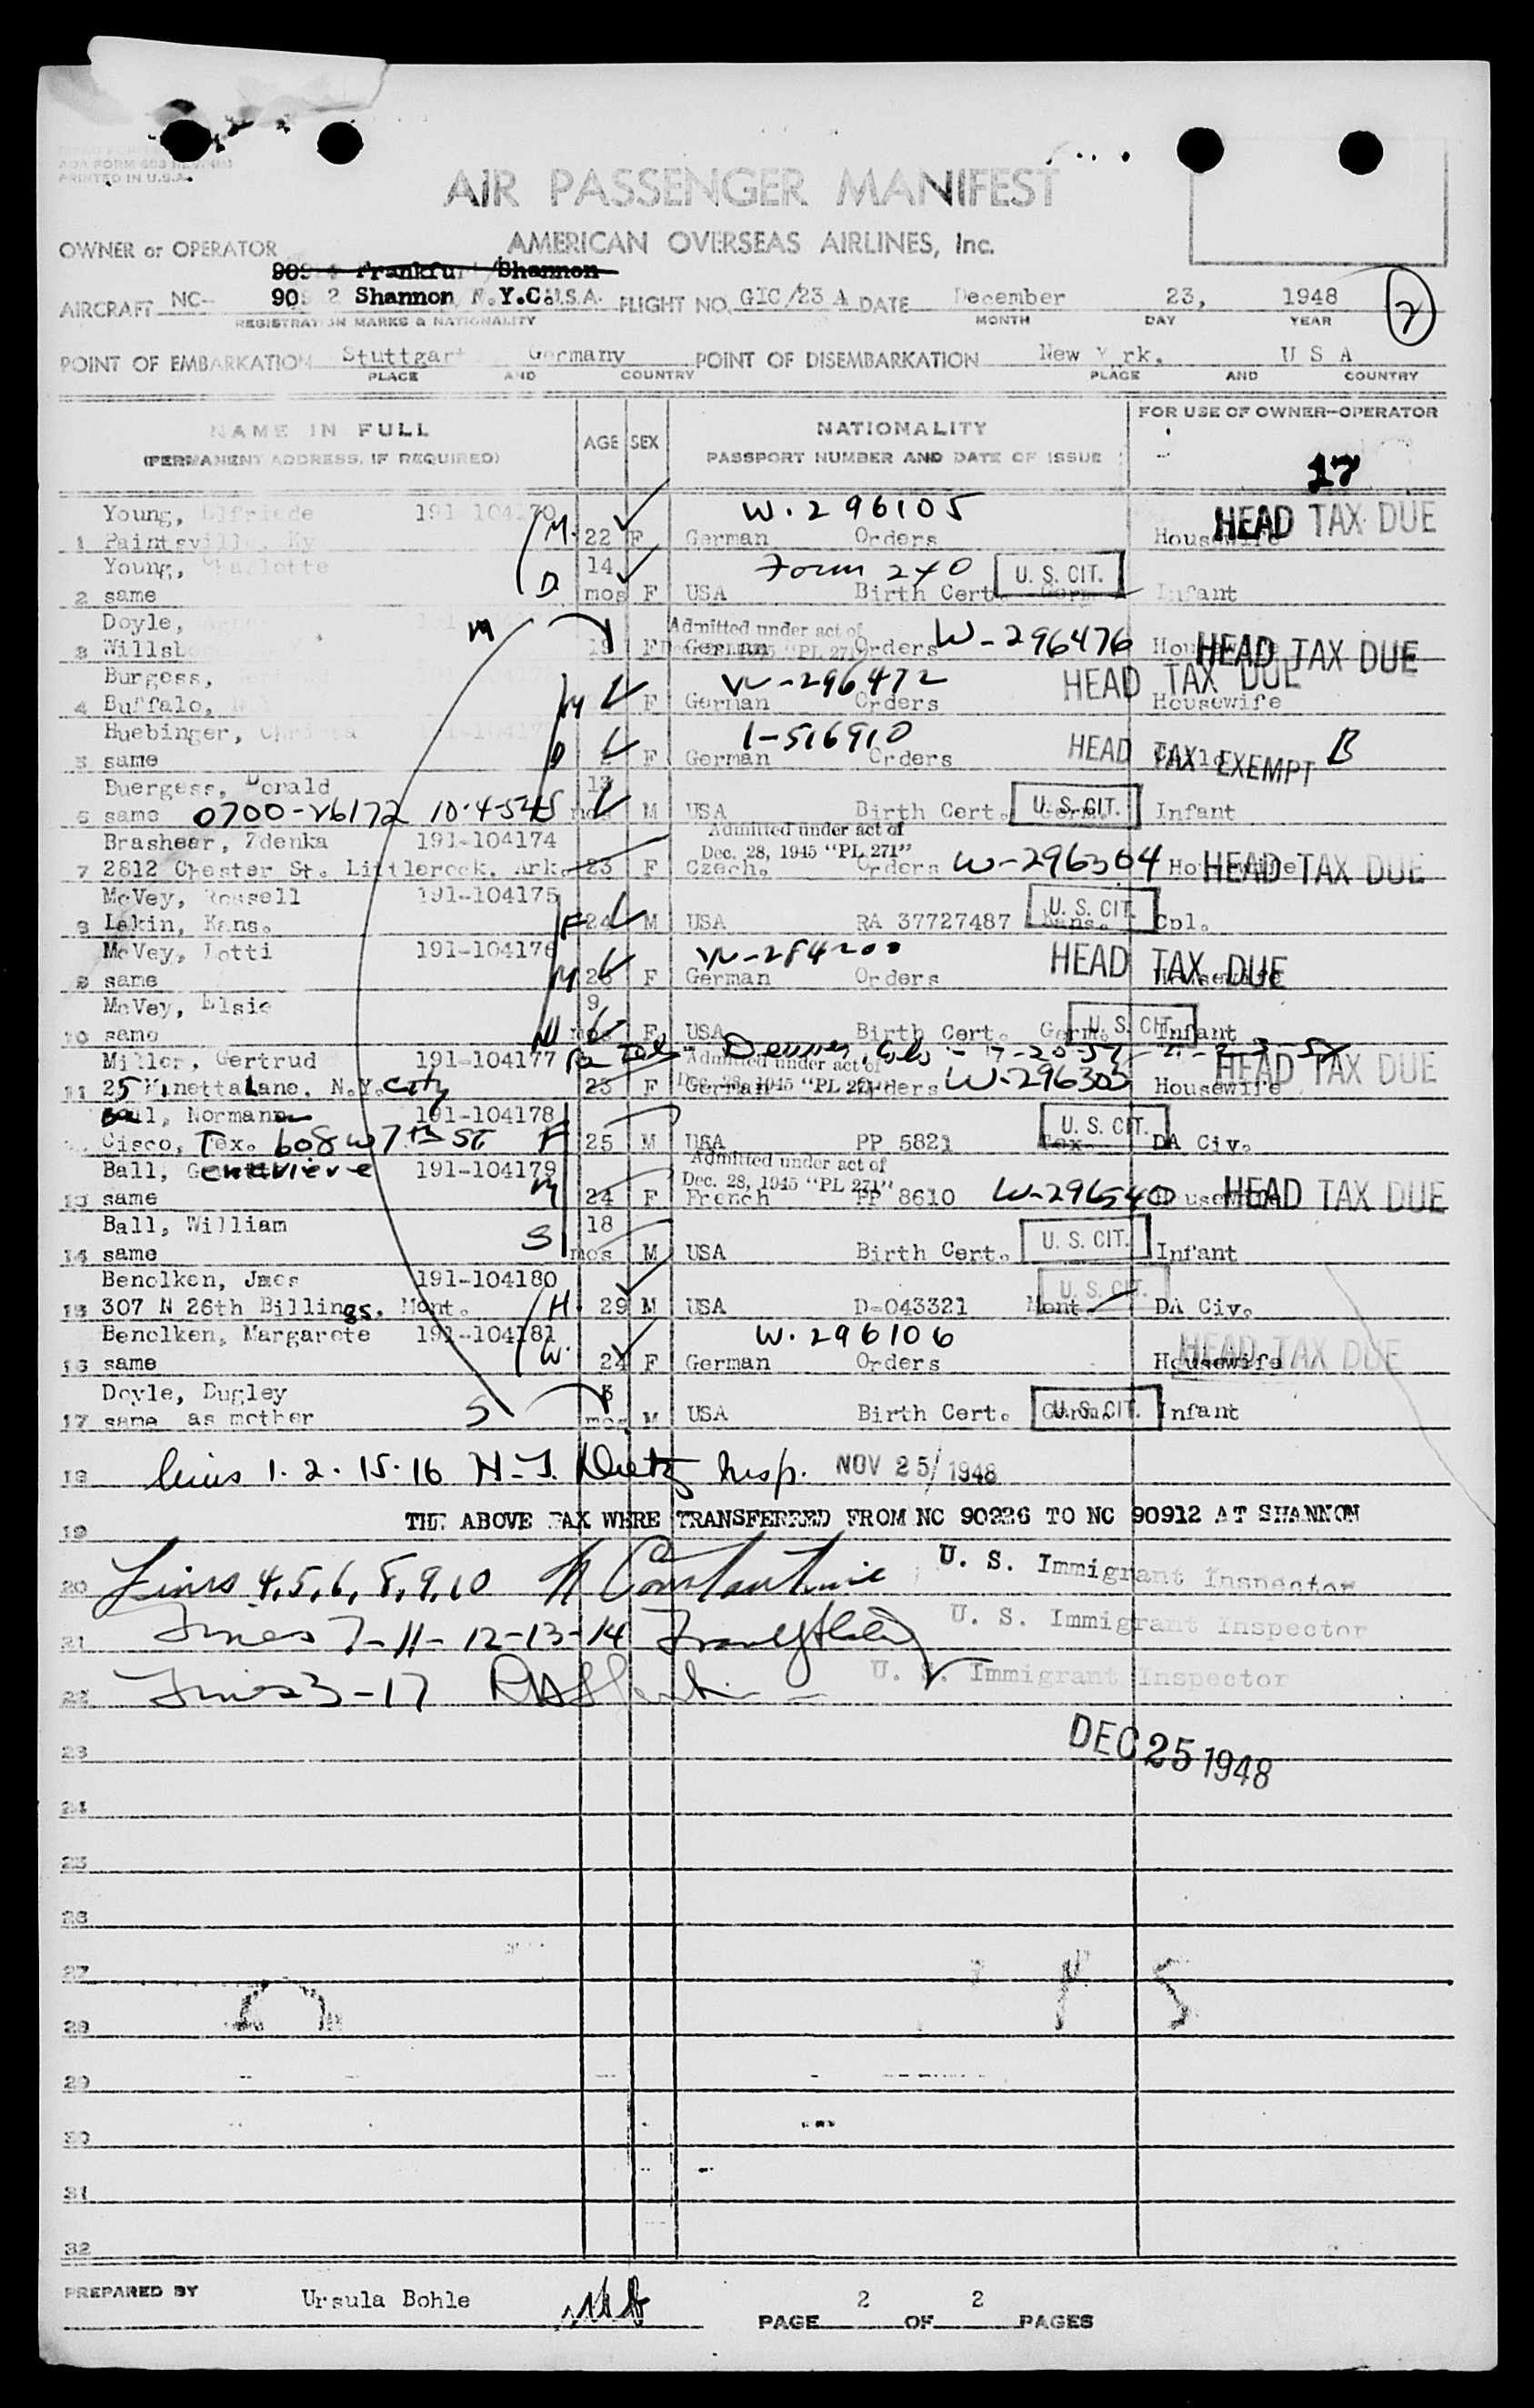 ADA FORM 603
PRINTED IN U.S.A.
AIR PASSENGER MANIFEST
OWNER or OPERATOR AMERICAN OVERSEAS AIRLINES, Inc.
Frankfur Shannon
AIRCRAFT NC- 90 2 Shannon N.Y.C. U.S.A. FLIGHT NO. GIC/23 A DATE December 23, 1948 2
REGISTRATION MARKS & NATIONALITY MONTH DAY YEAR
POINT OF EMBARKATION Stuttgart Germany POINT OF DISEMBARKATION New York, U S A
PLACE AND COUNTRY PLACE AND COUNTRY
NAME IN FULL
(PERMANENT ADDRESS, IF REQUIRED)
AGE SEX
NATIONALITY
PASSPORT NUMBER AND DATE OF ISSUE
FOR USE OF OWNER-OPERATOR
17
Young, Elfriede 191-104170 W. 296105 HEAD TAX DUE
1 Paintsville, Ky M. 22 F German Orders Housewife
Young, Charlotte 14 Form 240 U. S. CIT.
2 same D. mos F USA Birth Cert. Germ. Infant
Doyle, M Admitted under act of
3 Willsb 19 F German Orders W-296476 HEAD TAX DUE
Burgess, W-296472 HEAD TAX DUE
4 Buffalo, M F German Orders Housewife
Huebinger, 1-516910 HEAD TAX EXEMPT B
5 same D F German Orders
Buergess, Donald 13 U. S. CIT.
6 same 0700-26172 10-4-54 S mos M USA Birth Cert. Germ. Infant
Brashear, Zdenka 191-104174 Admitted under act of
Dec. 28, 1945 "PL 271"
7 2812 Chester St. Littlerock, Ark. 23 F Czech. Orders W-296304 Housewife HEAD TAX DUE
McVey, Rossell 191-104175 U. S. CIT.
8 Lakin, Kans. F 24 M USA RA 37727487 Kans. Cpl.
McVey, Lotti 191-104176 W-284200 HEAD TAX DUE
9 same M 26 F German Orders Housewife
McVey, Elsie 9 U. S. CIT.
10 same mos F USA Birth Cert. Germ. Infant
Miller, Gertrud 191-104177 Denver, Colo Admitted under act of HEAD TAX DUE
11 25 Minetta Lane, N.Y. City 23 F German Dec. 28, 1945 "PL 271" Orders W-296303 Housewife
Ball, Norman 191-104178 U. S. CIT.
Cisco, Tex. 608 W 7th ST F 25 M USA PP 5821 Tex. DA Civ.
Ball, Genevieve 191-104179 Admitted under act of
Dec. 28, 1945 "PL 271"
13 same M 24 F French PP 8610 W-296540 Housewife HEAD TAX DUE
Ball, William 18 U. S. CIT.
14 same S mos M USA Birth Cert. Infant
Benolken, James 191-104180 U. S. CIT.
15 307 N 26th Billings, Mont. H. 29 M USA D-043321 Mont. DA Civ.
Benolken, Margarete 191-104181 W. 296106 HEAD TAX DUE
16 same W. 24 F German Orders Housewife
Doyle, Dugley U. S. CIT.
17 same as mother S mos M USA Birth Cert. Germ. Infant
18 Lines 1. 2. 15. 16 H. J. Dietz Insp. NOV 25 1948
19 THE ABOVE PAX WERE TRANSFERRED FROM NC 90226 TO NC 90912 AT SHANNON
20 Lines 4,5,6,8,9,10 N Constantine U. S. Immigrant Inspector
21 Lines 7-11-12-13-14 U. S. Immigrant Inspector
22 Lines 3-17 U. S. Immigrant Inspector
23 DEC 25 1948
24
25
26
27
28
29
30
31
32
PREPARED BY Ursula Bohle PAGE 2 OF 2 PAGES